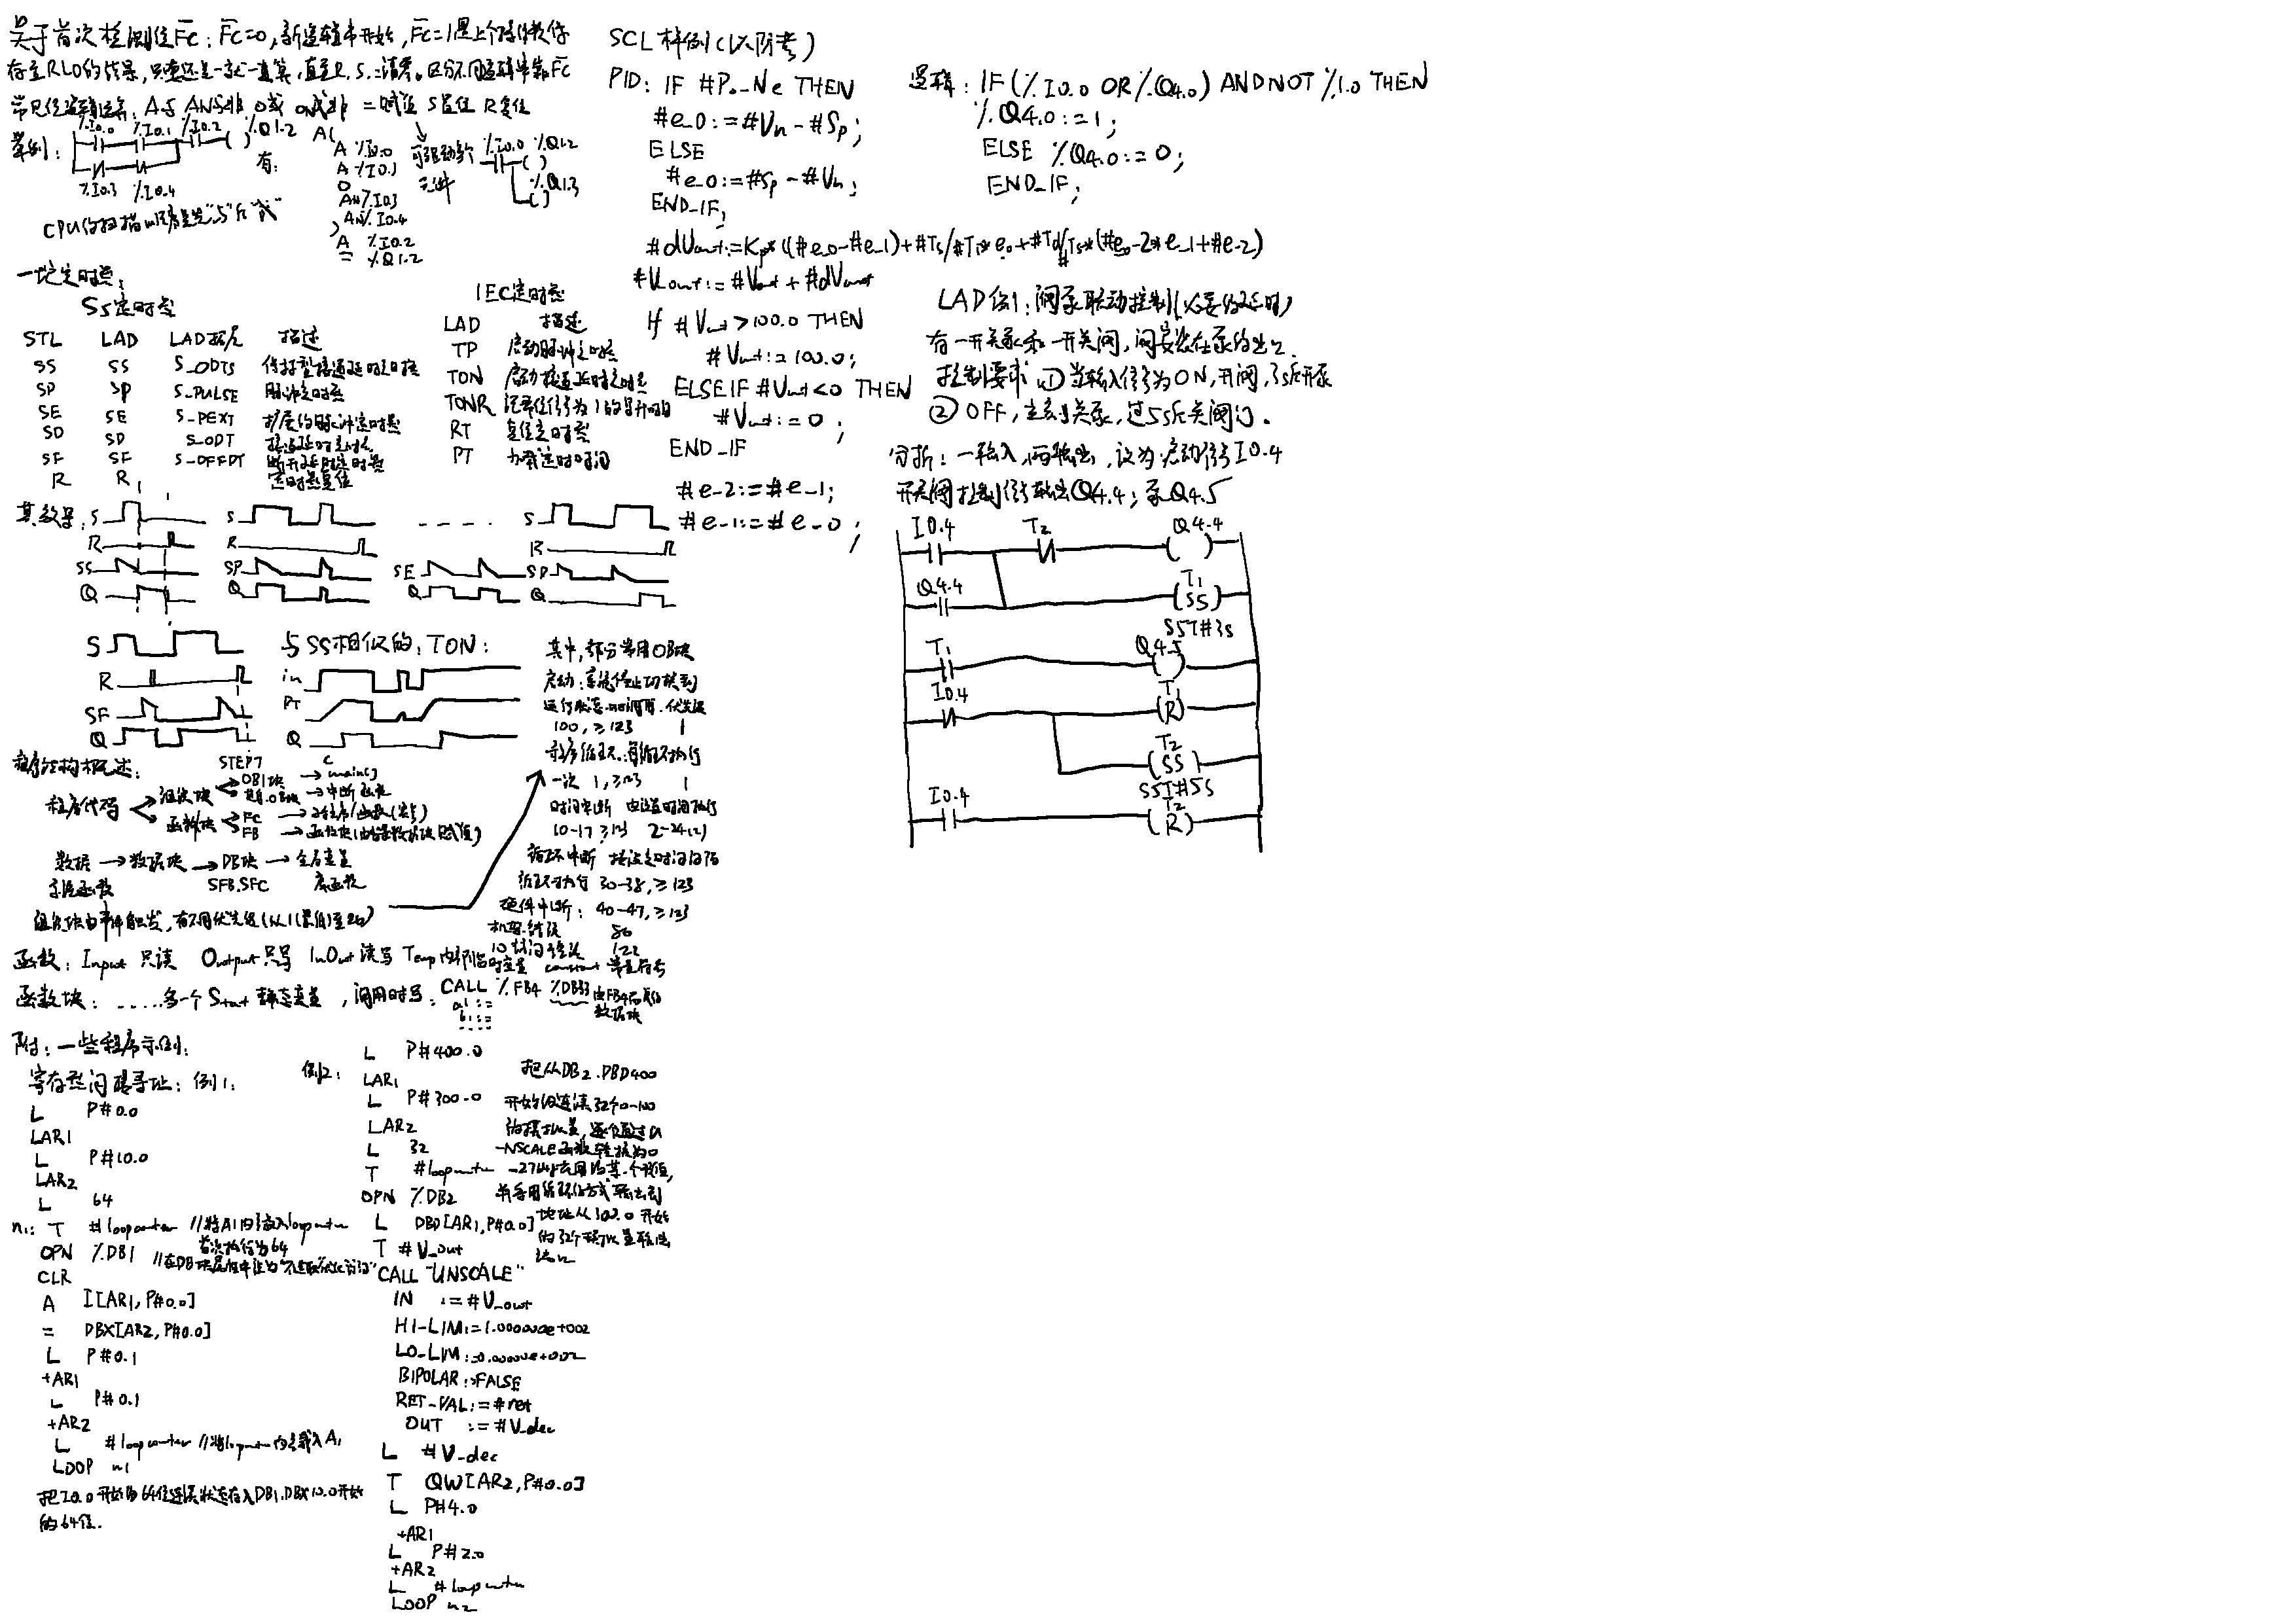 关于首次检测位F̄c：F̄c=0，新逻辑串开始，F̄c=1是上个
存至RLO的结果，
常见位逻辑运算：A与 AN与非 O或 ON或非 =赋值 S置位 R复位
举例：
%I0.0 %I0.1 %I0.2 %Q1.2
%I0.3 %I0.4
有：
A(
A %I0.0
A %I0.1
O
AN %I0.3
AN %I0.4
)
A %I0.2
= %Q1.2
可驱动多个元件
%I0.0 %Q1.2
%Q1.3
CPU的扫描顺序是先"与"后"或"
一些定时器：
S5定时器
STL LAD LAD指令 描述
SS SS S_ODTS 保持型接通延时定时器
SP SP S_PULSE 脉冲定时器
SE SE S_PEXT 扩展的脉冲定时器
SD SD S_ODT 接通延时定时器
SF SF S_OFFDT 断开延时定时器
R R 定时器复位
IEC定时器
LAD 描述
TP 启动脉冲定时器
TON 启动接通延时定时器
TONR 记录信号为1的
RT 复位定时器
PT 加载定时时间
S S ---- S
R R R
SS SP SE SD
Q Q Q Q
S
R
SF
Q
与SS相似的：TON：
in
PT
Q
程序结构概述：
STEP7 C
程序代码 组织块 OB1块 → main()
→ 中断函数
函数块 FC → 子程序/函数
FB → 函数块
数据 → 数据块 → DB块 → 全局变量
系统函数 SFB.SFC 库函数
组织块由事件触发，有不同优先级(从1(最低)至26)
其中，部分常用OB块
启动：系统停止切换到
运行状态时调用. 优先级
100, ≥123 1
程序循环：每循环执行
一次 1, ≥123 1
时间中断 由设置时间执行
10-17 ≥123 2-24(2)
循环中断 按设定时间间隔
循环执行 30-38, ≥123
硬件中断： 40-47, ≥123
机架错误 86
IO访问错误 122
函数：Input 只读 Output只写 InOut 读写 Temp内部临时变量 constant 常量符号
函数块：......多一个Stat 静态变量，调用时写：CALL %FB4 %DB33
a1 :=
b1 :=
----
附：一些程序示例：
寄存器间接寻址：例1：
L P#0.0
LAR1
L P#10.0
LAR2
L 64
n1: T #loopcounter //将A1内容放入loopcounter
首次执行为64
OPN %DB1
CLR
A I[AR1, P#0.0]
= DBX[AR2, P#0.0]
L P#0.1
+AR1
L P#0.1
+AR2
L #loopcounter //将loopcounter内容载入A1
LOOP n1
把I0.0开始的64位连续状态存入DB1.DBX10.0开始
的64位.
例2：
L P#400.0
LAR1
L P#300.0
LAR2
L 32
T #loopcounter
OPN %DB2
L DBD[AR1, P#0.0]
T #V_out
CALL "UNSCALE"
IN :=#V_out
HI-LIM:=1.000000e+002
LO-LIM:=0.000000e+002
BIPOLAR:=FALSE
RET-VAL:=#ret
OUT :=#V_dec
L #V_dec
T QW[AR2, P#0.0]
L P#4.0
+AR1
L P#2.0
+AR2
L #loopcounter
LOOP n2
把从DB2.DBD400
开始的连续32个0-100
的模拟量，逐个通过U
-NSCALE函数转换为0
-27648
并采用循环的方式输出到
地址从300.0开始
的32个模拟量输出
SCL样例(以防考)
PID: IF #Po_Ne THEN
#e_0:=#Vn-#Sp;
ELSE
#e_0:=#Sp-#Vn;
END_IF;
#dVout:=Kp*((#e_0-#e_1)+#Ts/#Ti*e_0+#Td/#Ts*(#e_0-2*e_1+#e-2)
#Vout:=#Vout+#dVout
If #Vout>100.0 THEN
#Vout:=100.0;
ELSEIF #Vout<0 THEN
#Vout:=0 ;
END_IF
#e-2:=#e-1;
#e-1:=#e-0 ;
逻辑：IF(%I0.0 OR %Q4.0) AND NOT %1.0 THEN
%Q4.0:=1;
ELSE %Q4.0:=0;
END_IF;
LAD例1：阀泵联动控制(必要的延时)
有一开关泵和一开关阀，阀安装在泵的出口.
控制要求 ① 当输入信号为ON,开阀,3s后开泵
② OFF，立刻关泵，过5s后关阀门.
分析：一输入,两输出，设为启动信号I0.4
开关阀控制信号输出Q4.4；泵Q4.5
I0.4 T2 Q4.4
( )
Q4.4 T1
(SS)
S5T#3s
T1 Q4.5
( )
I0.4 T1
(R)
T2
(SS)
S5T#5s
I0.4 T2
(R)